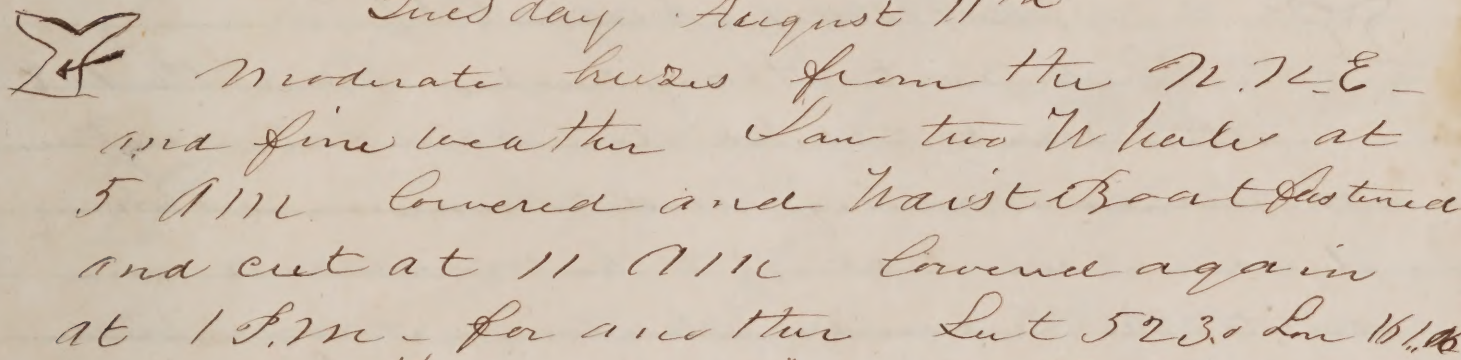 Tuesday August 11th
Moderate breezes from the N.N.E -
and fine weather Saw two Whales at
5 AM lowered and Waist Boat fastened
and cut at 11 AM lowered again
at 1 P.M - for another Lat 52 30 Lon 161..